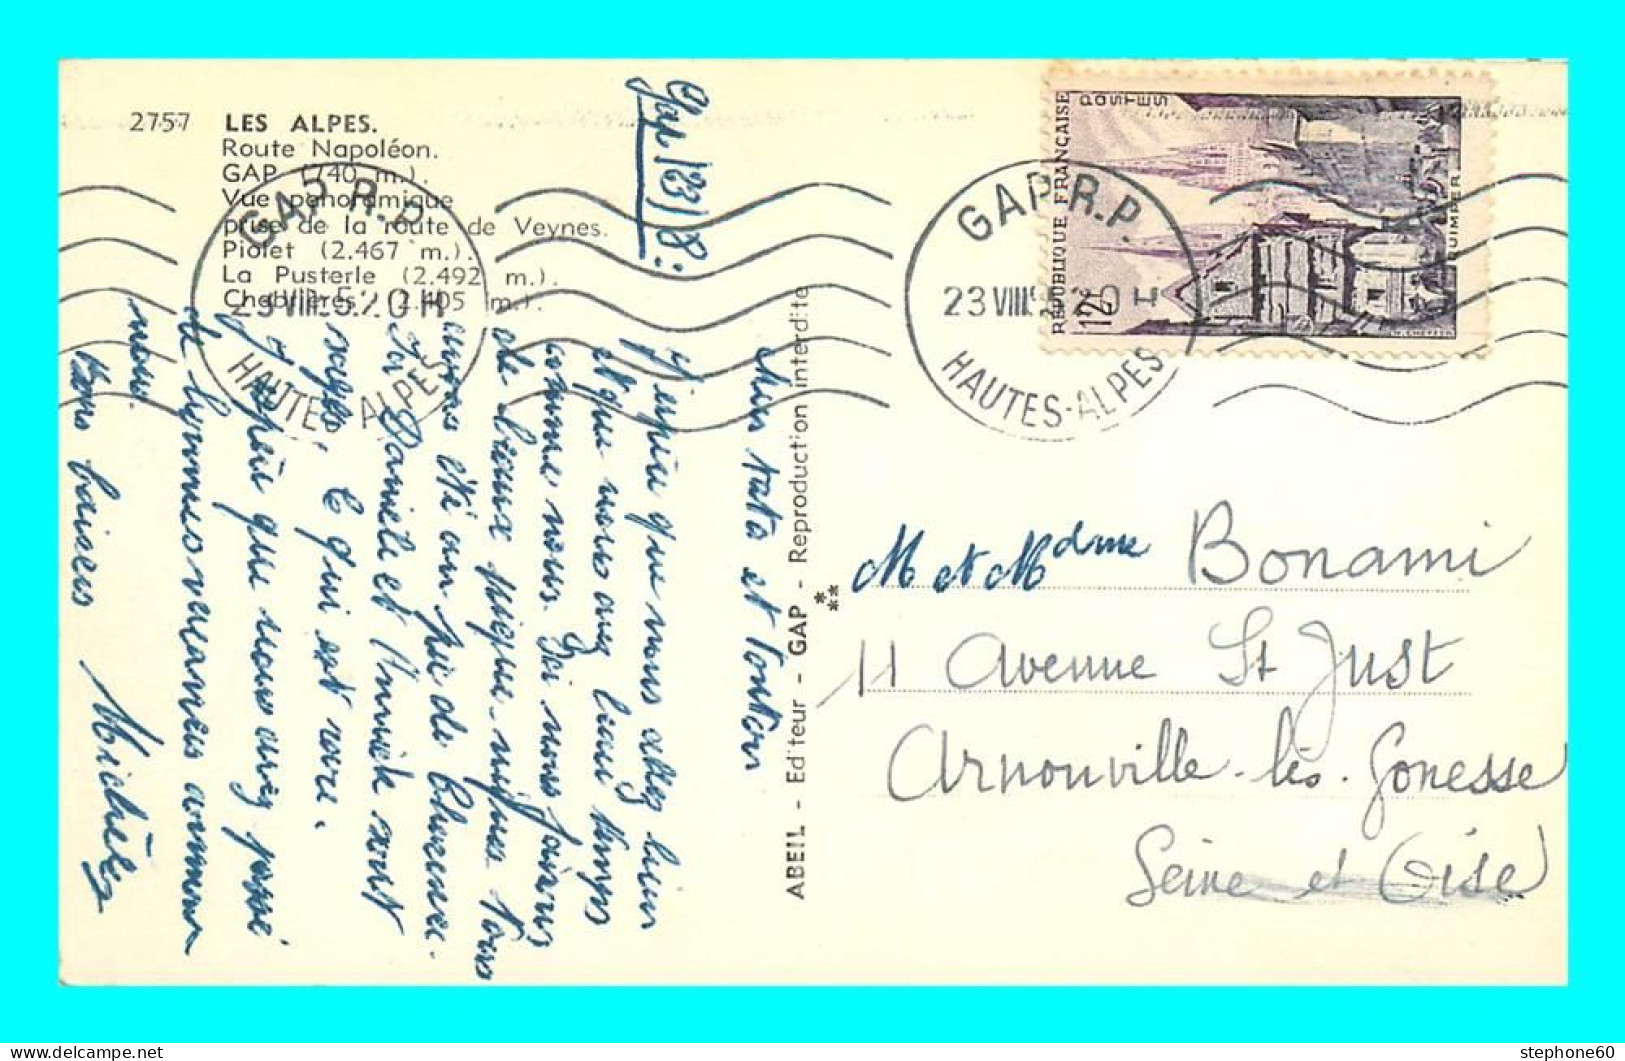 2757 LES ALPES.
Route Napoléon.
GAP (740 m.).
Vue panoramique
prise de la route de Veynes.
Piolet (2.467 m.).
La Pusterle (2.492 m.).
Chabrières (2.405 m.).
GAP R.P.
23 VIII 5 20H
HAUTES-ALPES
Gap 123/8:
Mon tata et Tonton
J'espère que vous allez bien
et que vous avez beau temps
comme nous. Ici nous faisons
de beaux pique-niques. Nous
avons été au pic de
La Danièle et Annick sont
sages, ce qui est rare.
J'espère que vous avez passé
de bonnes vacances comme
nous.
Bons baisers Michèle
ABEIL - Editeur - GAP - Reproduction interdite
REPUBLIQUE FRANÇAISE
POSTES
12F
QUIMPER
GAP R.P.
23 VIII 5 20 H
HAUTES-ALPES
M et Mdme Bonami
11 Avenue St Just
Arnouville-lès-Gonesse
Seine et Oise
stephone60